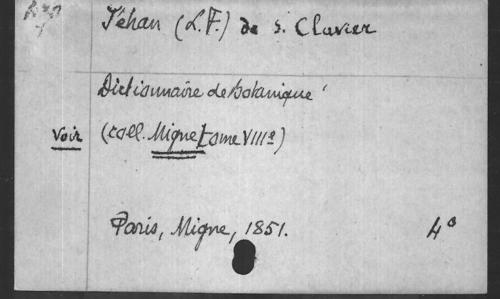 Jéhan (L.F.) de S. Clavier
Dictionnaire de botanique
voir (coll. Migne tome VIIIe)
Paris, Migne, 1851. 4°